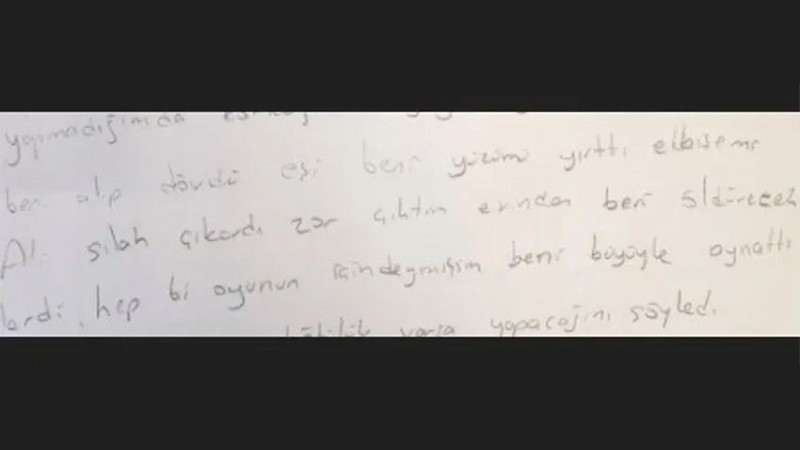 yapmadığımda
beni alıp dövdü eşi beni yüzümü yırttı elbisemi
Ali silah çıkardı zor çıktım evinden beni öldürecek
lerdi, hep bi oyunun içindeymişim beni büyüyle oynattı
varsa yapacağını söyledi